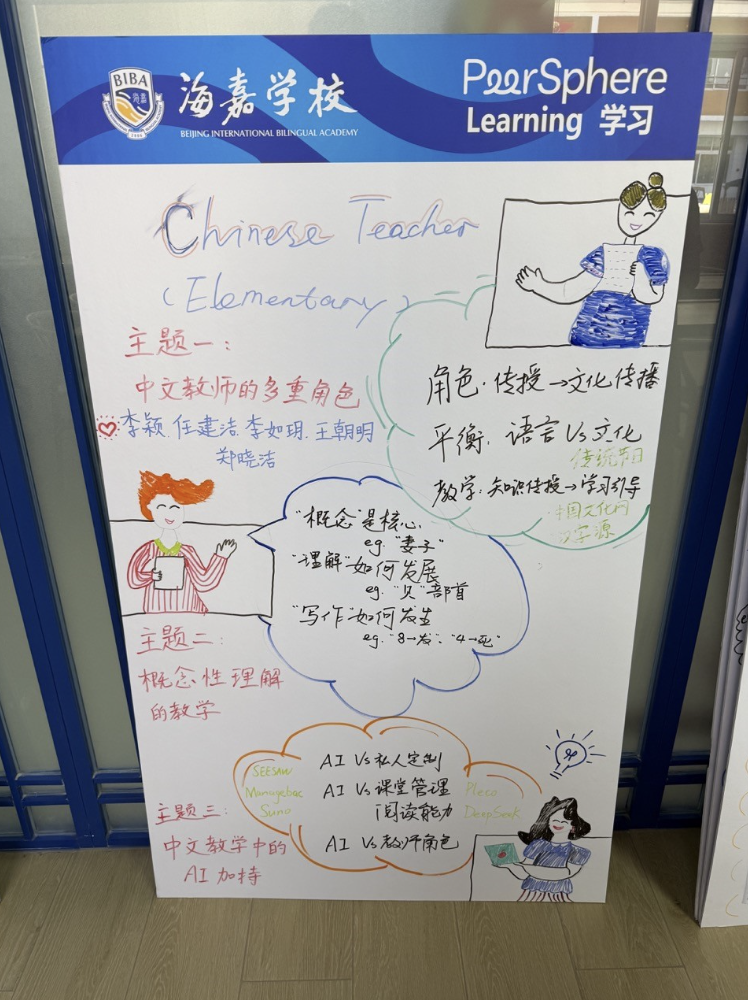 BIBA
海嘉
海嘉学校
BEIJING INTERNATIONAL BILINGUAL ACADEMY
PeerSphere
Learning 学习
Chinese Teacher
(Elementary)
主题一:
中文教师的多重角色
李颖.任建洁.李如玥.王朝明
郑晓洁
角色.传授→文化传播
平衡.语言Vs文化
传统节日
教学:知识传授→学习引导
中国文化门
汉字源
"概念"是核心.
eg."妻子"
"理解"如何发展
eg."贝"部首
"写作"如何发生
eg."8→发"."4→死"
主题二:
概念性理解
的教学
AI Vs私人定制
AI Vs课堂管理
阅读能力
AI Vs教师角色
SEESAW
Managebac
Suno
Pleco
DeepSeek
主题三:
中文教学中的
AI加持